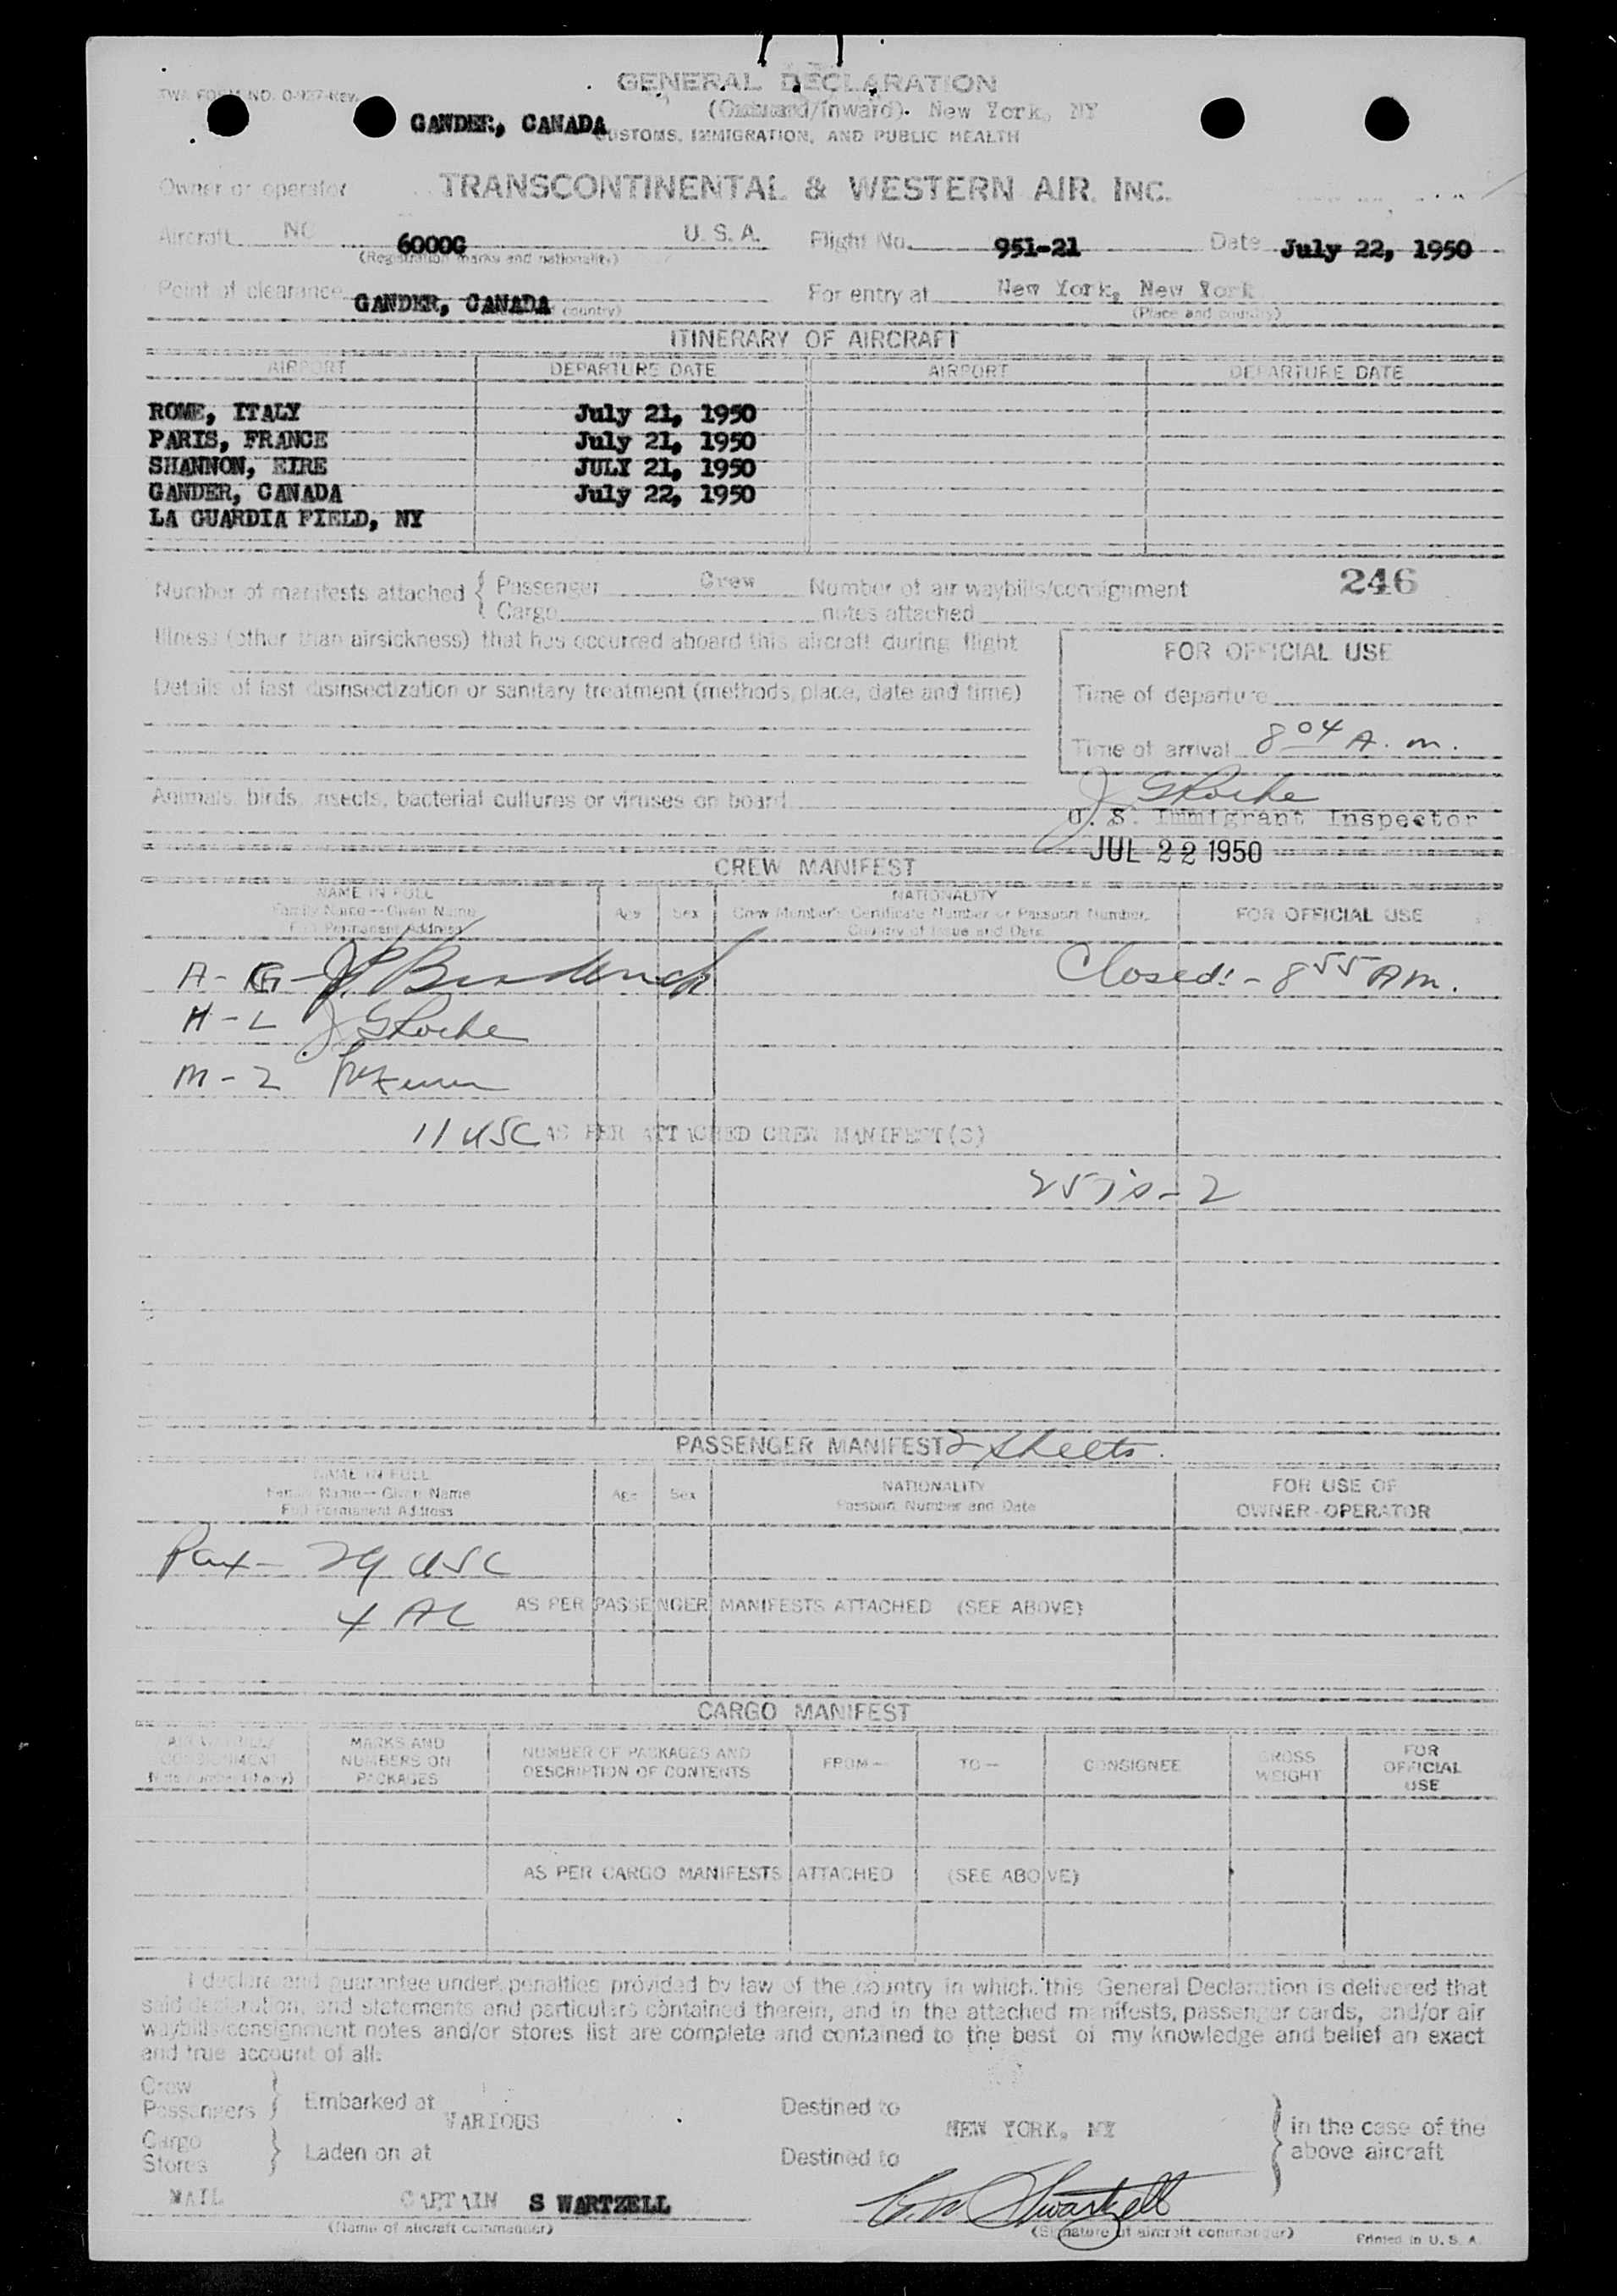 GENERAL DECLARATION
TWA FORM NO. 0-937-Rev.
(Outward/Inward). New York, NY
GANDER, CANADA
CUSTOMS, IMMIGRATION, AND PUBLIC HEALTH
Owner or operator TRANSCONTINENTAL & WESTERN AIR, INC.
Aircraft NC 6000G U. S. A. Flight No. 951-21 Date July 22, 1950
(Registration marks and nationality)
Point of clearance GANDER, CANADA country) For entry at New York, New York
(Place and country)
ITINERARY OF AIRCRAFT
AIRPORT DEPARTURE DATE AIRPORT DEPARTURE DATE
ROME, ITALY July 21, 1950
PARIS, FRANCE July 21, 1950
SHANNON, EIRE JULY 21, 1950
GANDER, CANADA July 22, 1950
LA GUARDIA FIELD, NY
Number of manifests attached { Passenger Crew Number of air waybills/consignment 246
Cargo notes attached
Illness (other than airsickness) that has occurred aboard this aircraft during flight
FOR OFFICIAL USE
Details of last disinsectization or sanitary treatment (methods, place, date and time)
Time of departure
Time of arrival 8 04 A. m.
Animals, birds, insects, bacterial cultures or viruses on board
J G Roche
U. S. Immigrant Inspector
JUL 22 1950
CREW MANIFEST
NAME IN FULL
Family Name—Given Name
Full Permanent Address
Age Sex
NATIONALITY
Crew Member's Certificate Number or Passport Number,
Country of Issue and Date
FOR OFFICIAL USE
A - G -
Closed! - 8 55 AM.
H - L J G Roche
M - Z
11 USC AS PER ATTACHED CREW MANIFEST(S)
PASSENGER MANIFEST 2 sheets.
NAME IN FULL
Family Name—Given Name
Full Permanent Address
Age Sex
NATIONALITY
Passport Number and Date
FOR USE OF
OWNER-OPERATOR
Pax - 29 USC
4 AL AS PER PASSENGER MANIFESTS ATTACHED (SEE ABOVE)
CARGO MANIFEST
AIR WAYBILL/
CONSIGNMENT
Note number (if any)
MARKS AND
NUMBERS ON
PACKAGES
NUMBER OF PACKAGES AND
DESCRIPTION OF CONTENTS
FROM—
TO—
CONSIGNEE
GROSS
WEIGHT
FOR
OFFICIAL
USE
AS PER CARGO MANIFESTS ATTACHED (SEE ABOVE)
I declare and guarantee under penalties provided by law of the country in which this General Declaration is delivered that
said declaration, and statements and particulars contained therein, and in the attached manifests, passenger cards, and/or air
waybills/consignment notes and/or stores list are complete and contained to the best of my knowledge and belief an exact
and true account of all:
Crew
Passengers } Embarked at VARIOUS Destined to NEW YORK, NY
Cargo
Stores } Laden on at Destined to
} in the case of the
above aircraft
MAIL CAPTAIN S WARTZELL
(Name of aircraft commander)
Swartzell
(Signature of aircraft commander)
Printed in U. S. A.